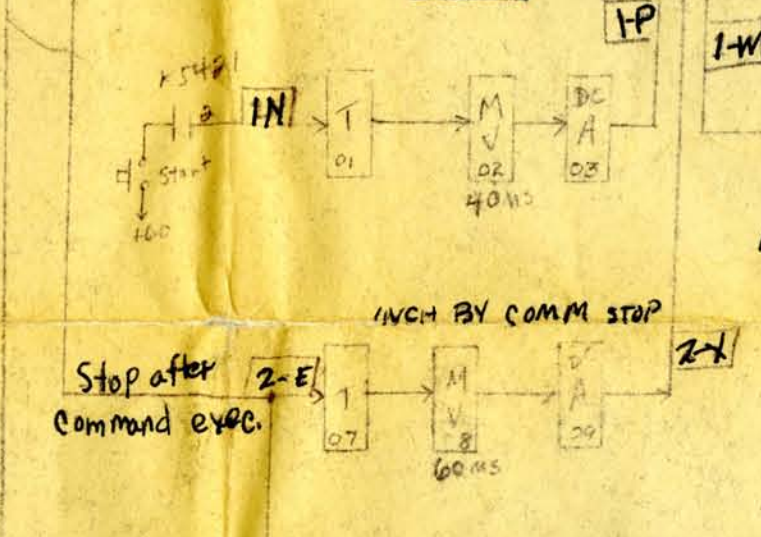 1-P
1-W
K5421
2
1N
T
01
M
V
02
40 MS
DC
A
03
Start
INCH BY COMM STOP
2-X
Stop after
2-E
command exec.
T
07
M
V
8
60 MS
A
09